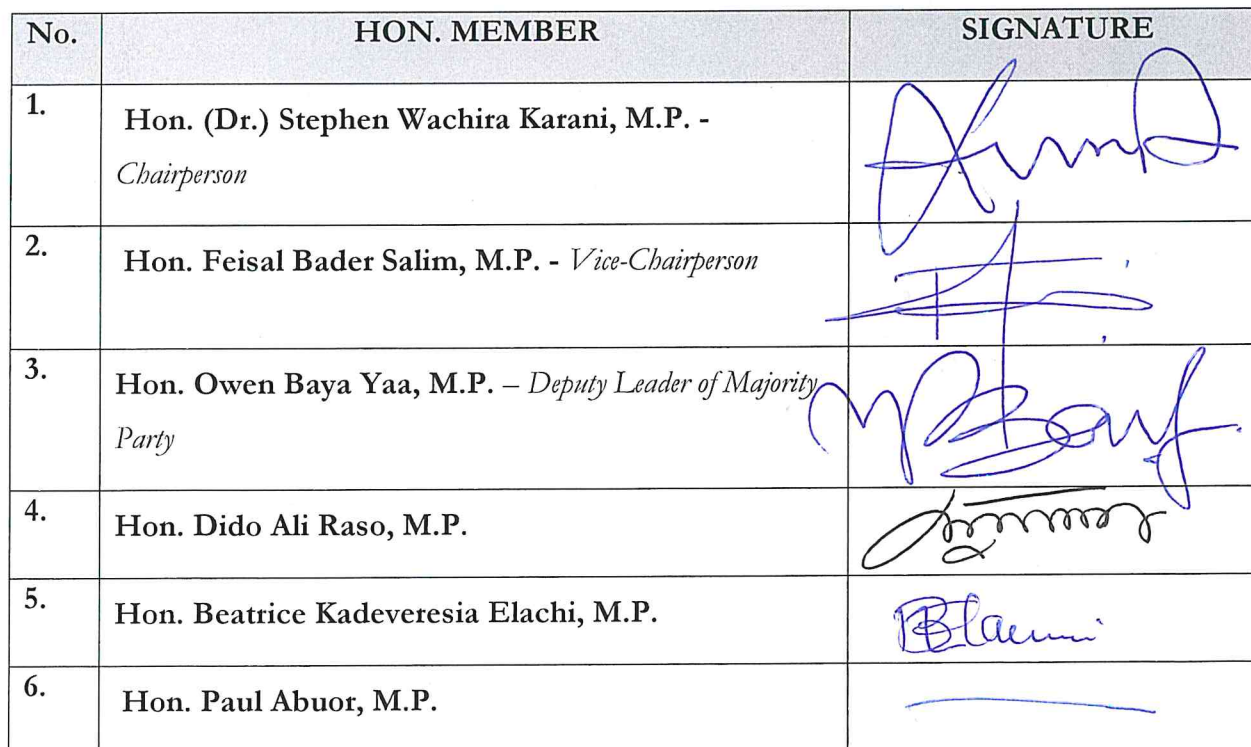 No. HON. MEMBER SIGNATURE
1. Hon. (Dr.) Stephen Wachira Karani, M.P. -
Chairperson
2. Hon. Feisal Bader Salim, M.P. - Vice-Chairperson
3. Hon. Owen Baya Yaa, M.P. – Deputy Leader of Majority
Party
4. Hon. Dido Ali Raso, M.P.
5. Hon. Beatrice Kadeveresia Elachi, M.P.
6. Hon. Paul Abuor, M.P.